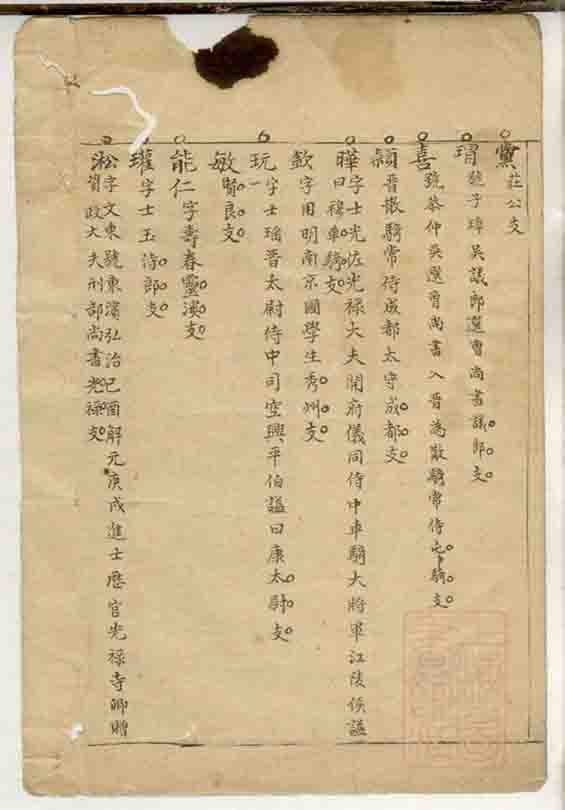 黨 莊公支
瑁 號子璋吳議郎選曹尚書議郎支
喜 號恭仲吳選曹尚書入晉為散騎常侍 騎支
穎 晉散騎常侍成都太守成都支
曄 字士光左光祿大夫開府儀同侍中車騎大將軍江陵侯謚
曰穆車騎支
歆 字用明南京國學生秀州支
玩 字士瑤晉太尉侍中司空興平伯謚曰康太尉支
一
敏 賢良支
能仁 字壽春靈濱支
瓘 字士玉侍郎支
淞 字文東號東濱弘治己酉解元庚戌進士歷官光祿寺卿贈
資政大夫刑部尚書光祿支